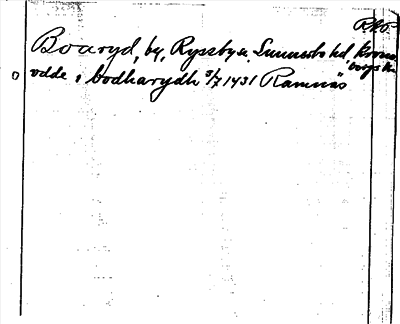 R.A.O.
Boaryd, by, Ryssby sn, Sunnerbo hd, Krono-
borgs län
odde i bodharydh 3/7 1431 Ramnäs